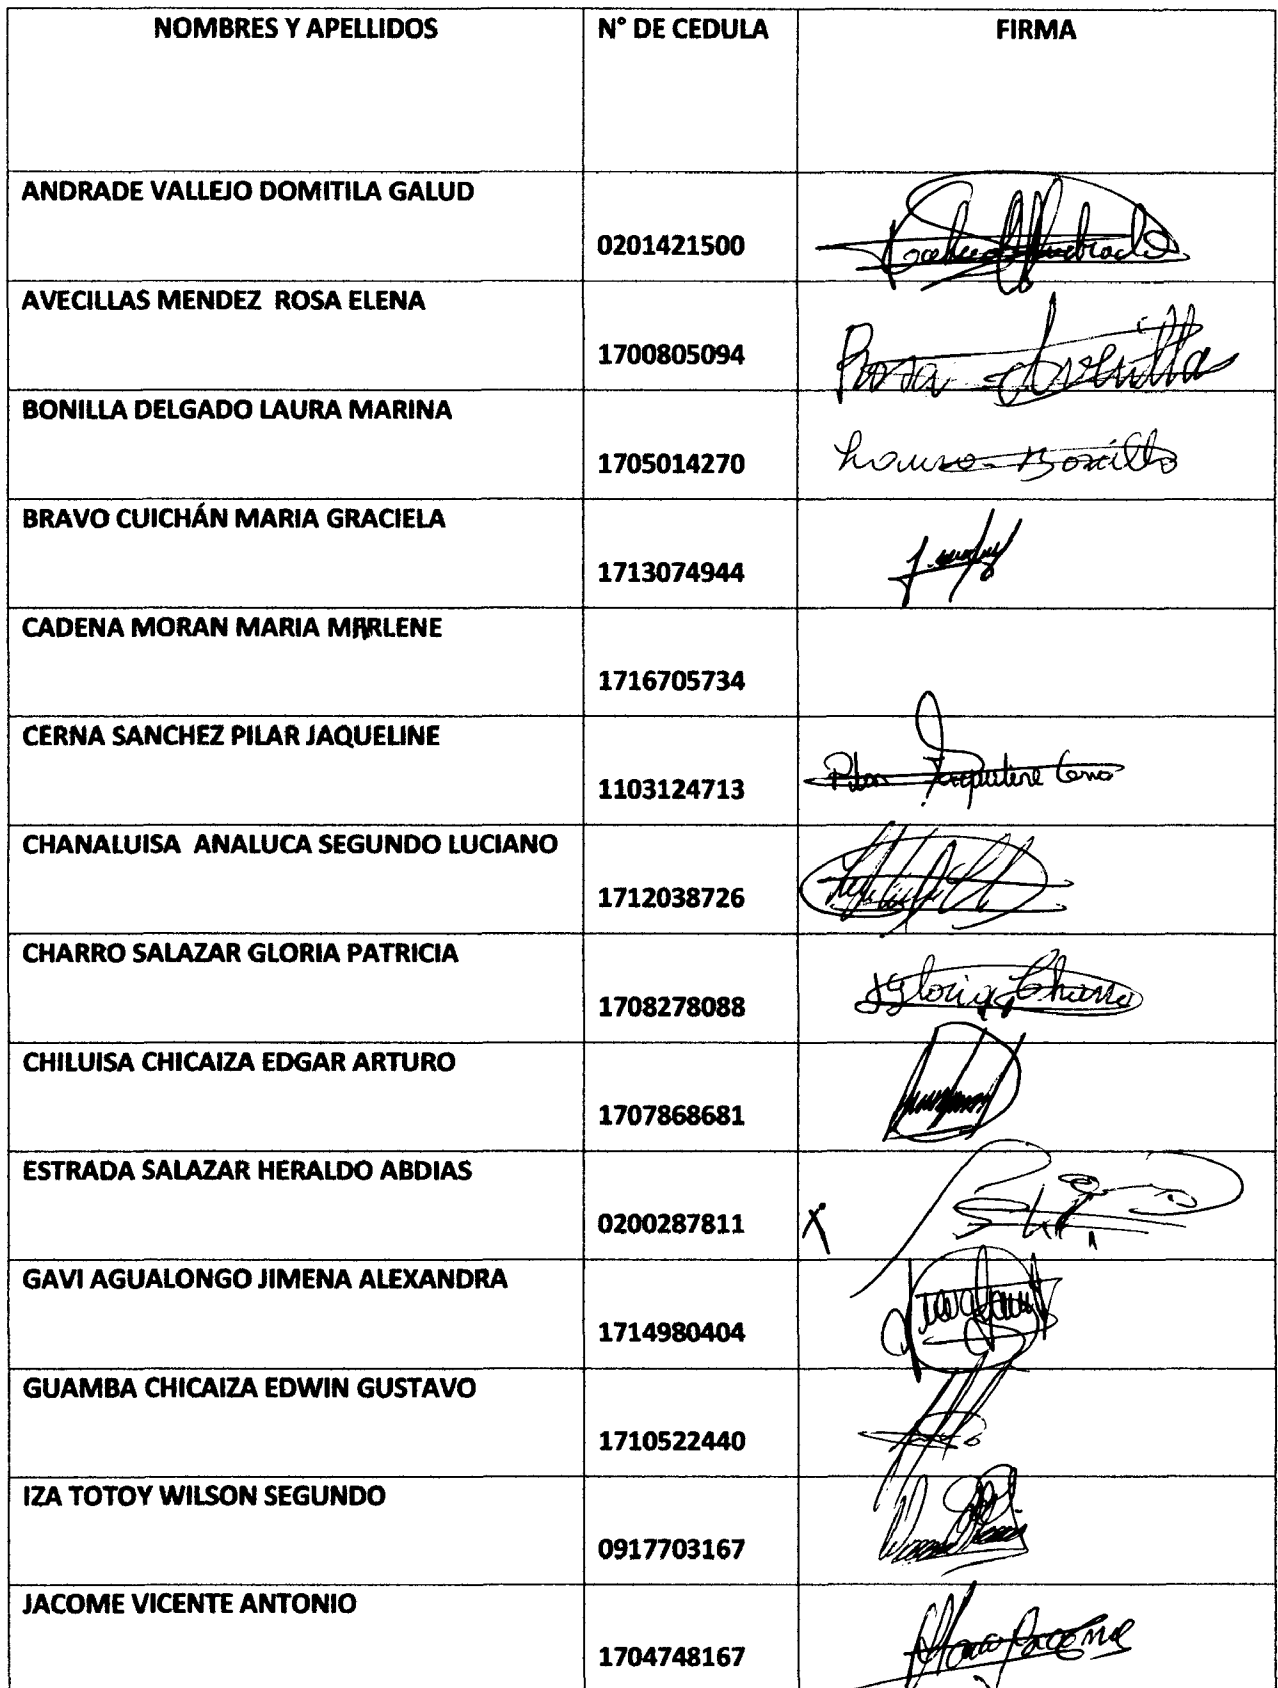 NOMBRES Y APELLIDOS N° DE CEDULA FIRMA
ANDRADE VALLEJO DOMITILA GALUD
0201421500
AVECILLAS MENDEZ ROSA ELENA
1700805094 Rosa Avecilla
BONILLA DELGADO LAURA MARINA
1705014270 Laura Bonilla
BRAVO CUICHÁN MARIA GRACIELA
1713074944
CADENA MORAN MARIA MARLENE
1716705734
CERNA SANCHEZ PILAR JAQUELINE
1103124713 Pilar Jaqueline Cerna
CHANALUISA ANALUCA SEGUNDO LUCIANO
1712038726
CHARRO SALAZAR GLORIA PATRICIA
1708278088 Gloria Charro
CHILUISA CHICAIZA EDGAR ARTURO
1707868681
ESTRADA SALAZAR HERALDO ABDIAS
0200287811 X
GAVI AGUALONGO JIMENA ALEXANDRA
1714980404
GUAMBA CHICAIZA EDWIN GUSTAVO
1710522440
IZA TOTOY WILSON SEGUNDO
0917703167
JACOME VICENTE ANTONIO
1704748167